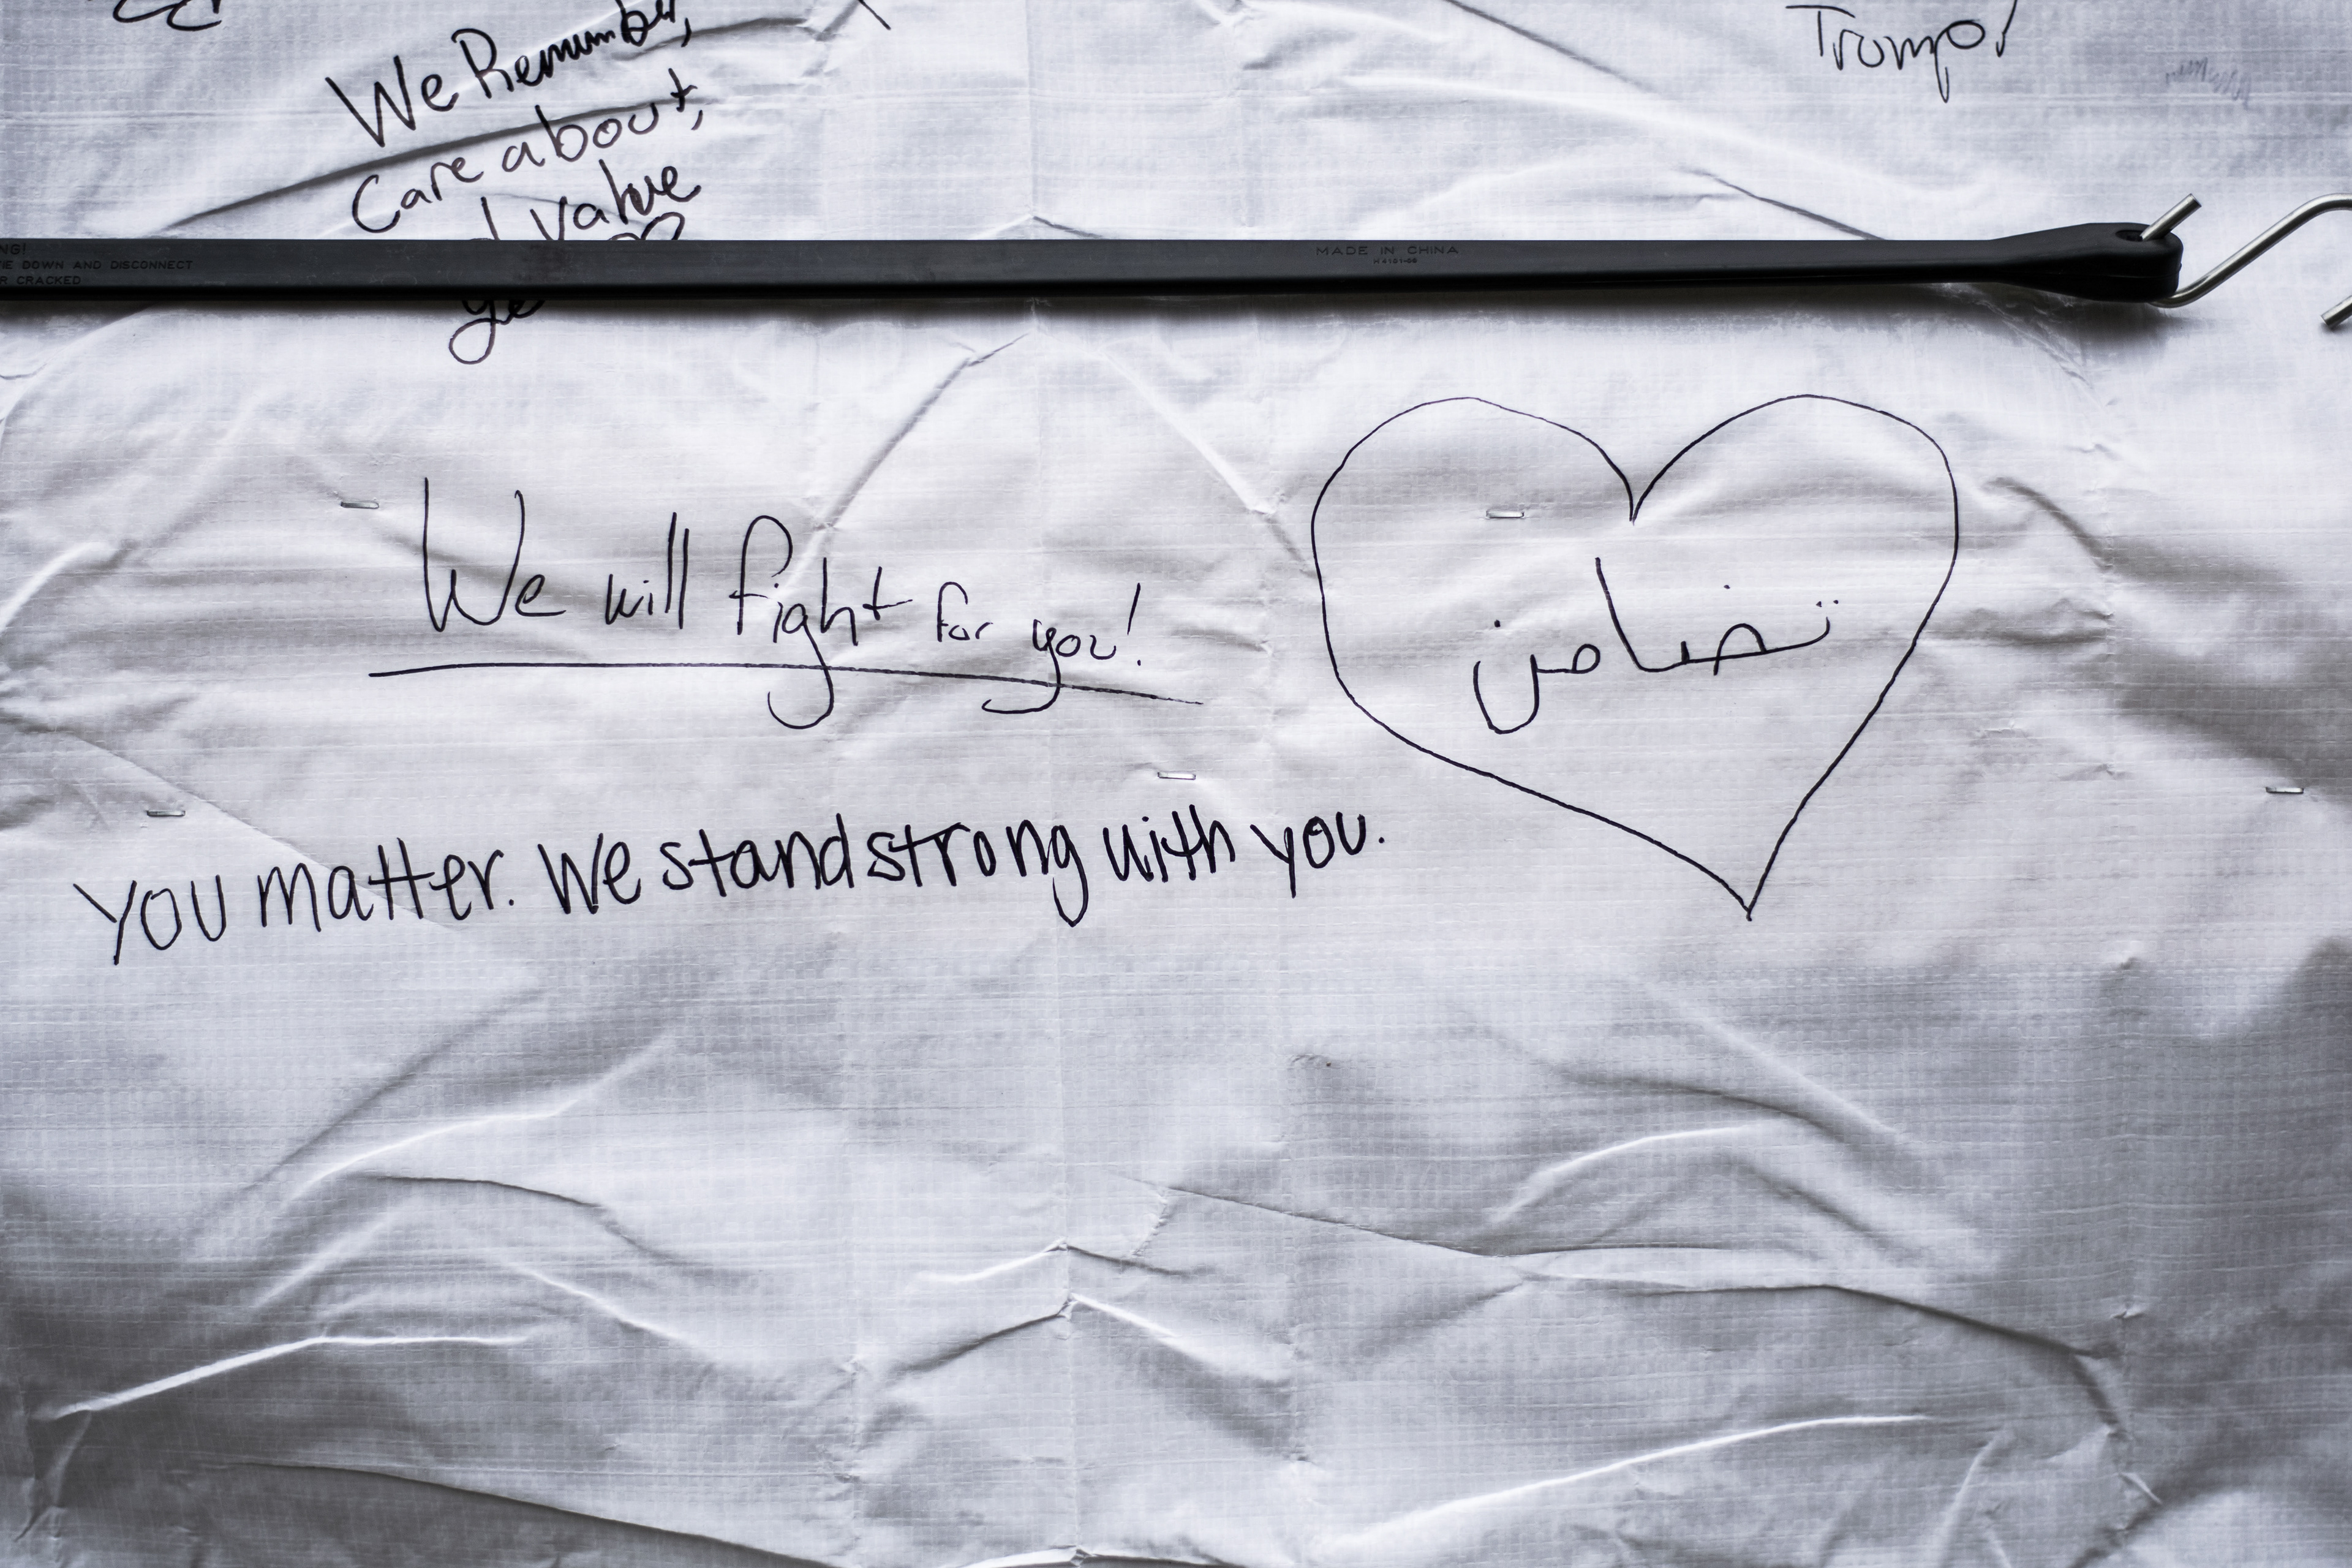 We Remember,
Trump!
Care about,
value
NG!
IE DOWN AND DISCONNECT
R CRACKED
MADE IN CHINA
We will fight for you!
تضامن
you matter. We stand strong with you.